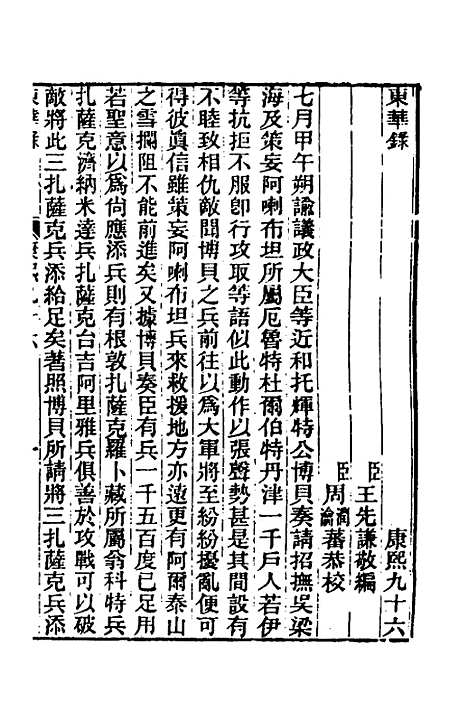 東華錄　康熙九十六
臣王先謙敬編
臣周潤蕃周瀹蕃恭校
七月甲午朔諭議政大臣等近和托輝特公博貝奏請招撫吳梁
海及策妄阿喇布坦所屬厄魯特杜爾伯特丹津一千戶人若伊
等抗拒不服卽行攻取等語似此動作以張聲勢甚是其間設有
不睦致相仇敵聞博貝之兵前往以爲大軍將至紛紛擾亂便可
得彼眞信雖策妄阿喇布坦兵來救援地方亦遠更有阿爾泰山
之雪攔阻不能前進矣又據博貝奏臣有兵一千五百度已足用
若聖意以爲尙應添兵則有根敦扎薩克羅卜藏所屬翁科特兵
扎薩克濟納米達兵扎薩克台吉阿里雅兵俱善於攻戰可以破
敵將此三扎薩克兵添給足矣著照博貝所請將三扎薩克兵添
東華錄　康熙九十六　一